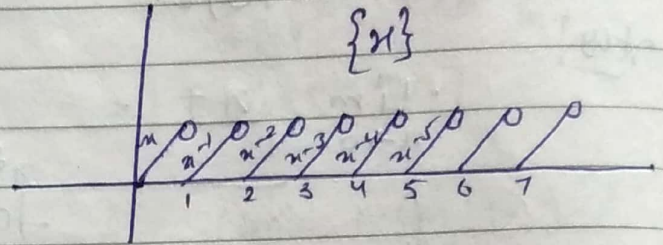 {x}
x x-1 x-2 x-3 x-4 x-5
1 2 3 4 5 6 7